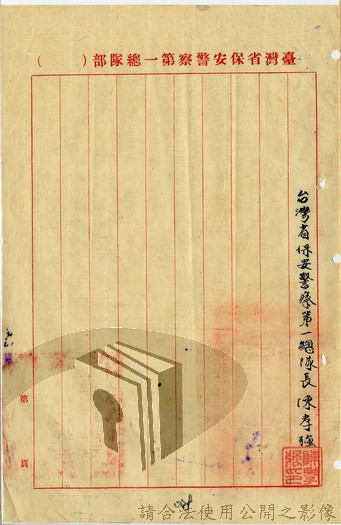 臺灣省保安警察第一總隊部（　　）
台灣省保安警察第一總隊長陳孝強
第　頁
請合法使用公開之影像